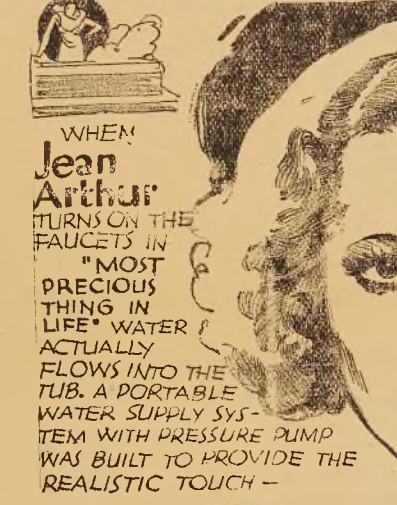 WHEN
Jean
Arthur
TURNS ON THE
FAUCETS IN
"MOST
PRECIOUS
THING IN
LIFE" WATER
ACTUALLY
FLOWS INTO THE
TUB. A PORTABLE
WATER SUPPLY SYS-
TEM WITH PRESSURE PUMP
WAS BUILT TO PROVIDE THE
REALISTIC TOUCH —